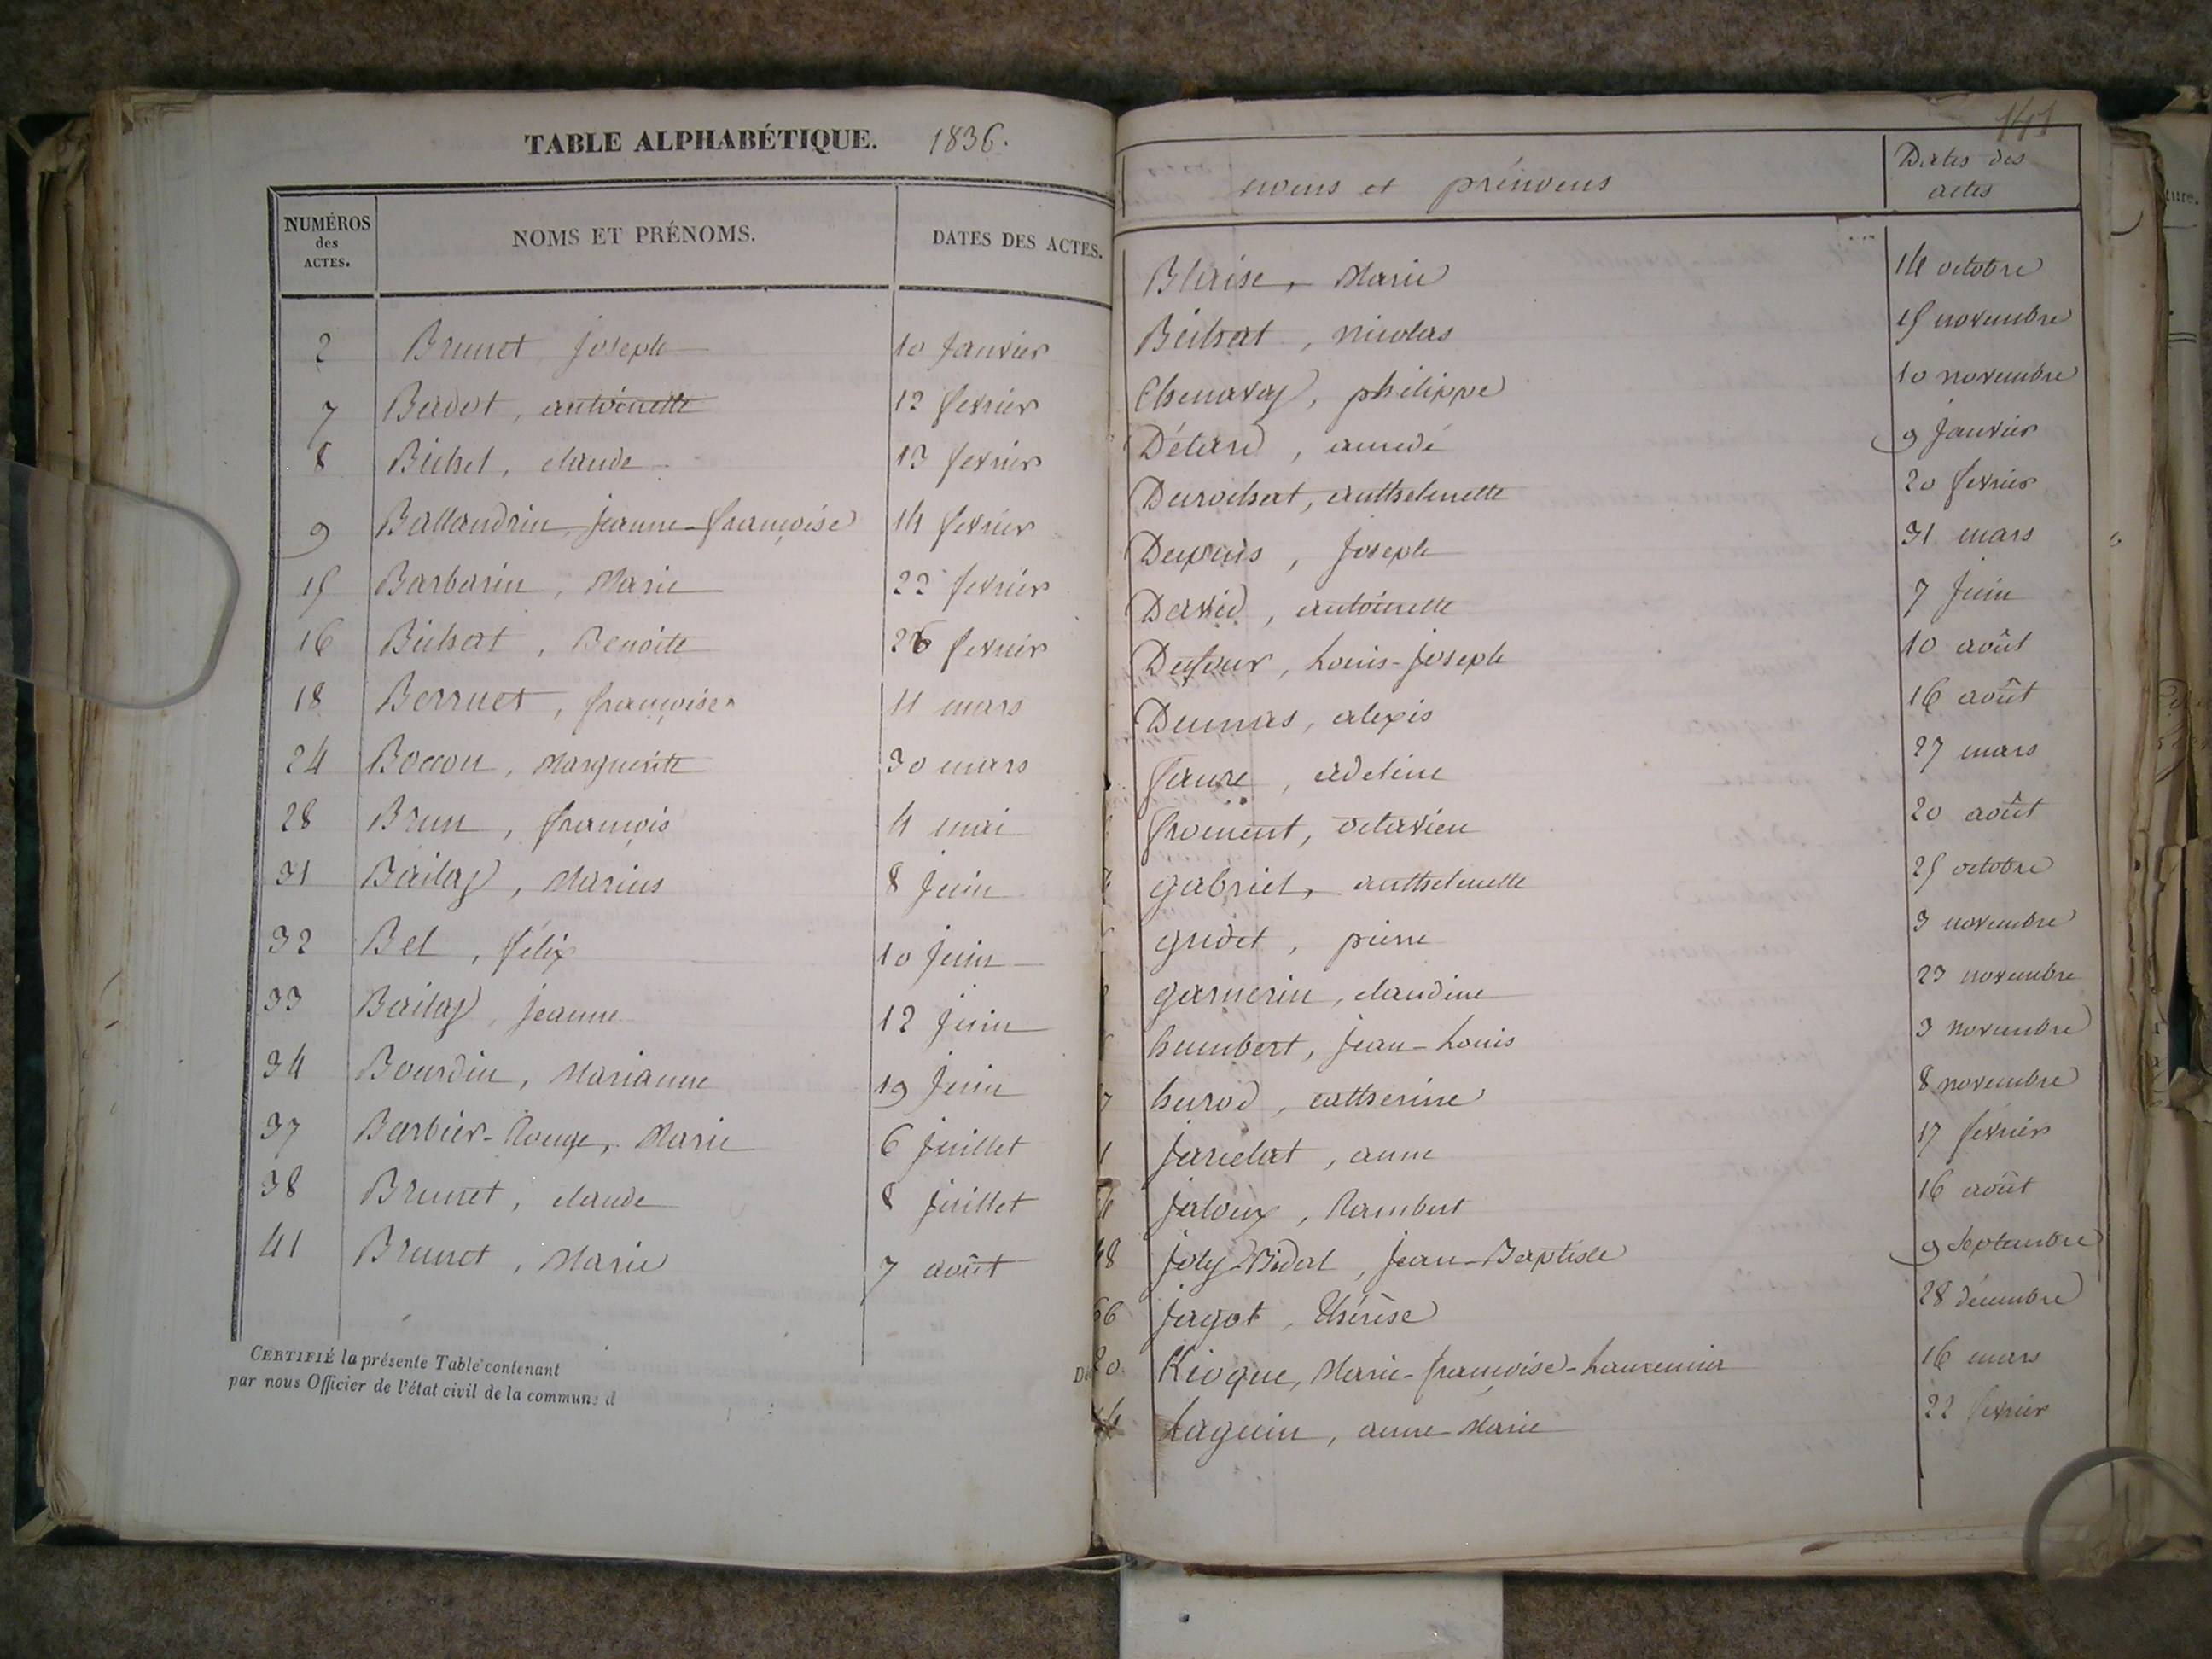 TABLE ALPHABÉTIQUE. 1836.
NUMÉROS des ACTES. NOMS ET PRÉNOMS. DATES DES ACTES.
2 Brunet joseph 10 janvier
7 Badot, antoinette 12 fevrier
8 Bichet, claude 13 fevrier
9 Ballandrin jeanne-françoise 14 fevrier
15 Barbarin, Marie 22 fevrier
16 Bichat, Benoite 26 fevrier
18 Berruet, françoise 11 mars
24 Boccon, Marguerite 30 mars
28 Brun, françois 4 mai
31 Bailly, Marius 8 juin
32 Bel, félix 10 juin
33 Bailly, jeanne 12 juin
34 Bourdin, Marianne 19 juin
37 Barbier-Rouge, Marie 6 juillet
38 Brunet, claude 8 juillet
41 Brunet, Marie 7 août
CERTIFIÉ la présente Table contenant
par nous Officier de l'état civil de la commune d
141
noms et prénoms Dates des actes
Blaise, Marie 14 octobre
Bichat, nicolas 15 novembre
Chenavay, philippe 10 novembre
Détard, amedé 9 janvier
Durochat, anthelmette 20 fevrier
Dupuis, joseph 31 mars
David, antoinette 7 juin
Dufour, Louis-joseph 10 août
Dumas, alexis 16 août
faure, adeline 27 mars
froment, octavien 20 août
gabriel, anthelmette 25 octobre
gridet, pierre 3 novembre
garnerin, claudine 23 novembre
humbert, jean-Louis 3 novembre
7 hurod, catherine 8 novembre
1 janelat, anne 17 fevrier
jaloux, Rambert 16 août
48 joly-Bidal, jean-Baptiste 9 Septembre
66 jagot, Thérèse 28 décembre
20 Kioque, Marie-françoise- 16 mars
14 Laguin, anne Marie 22 fevrier